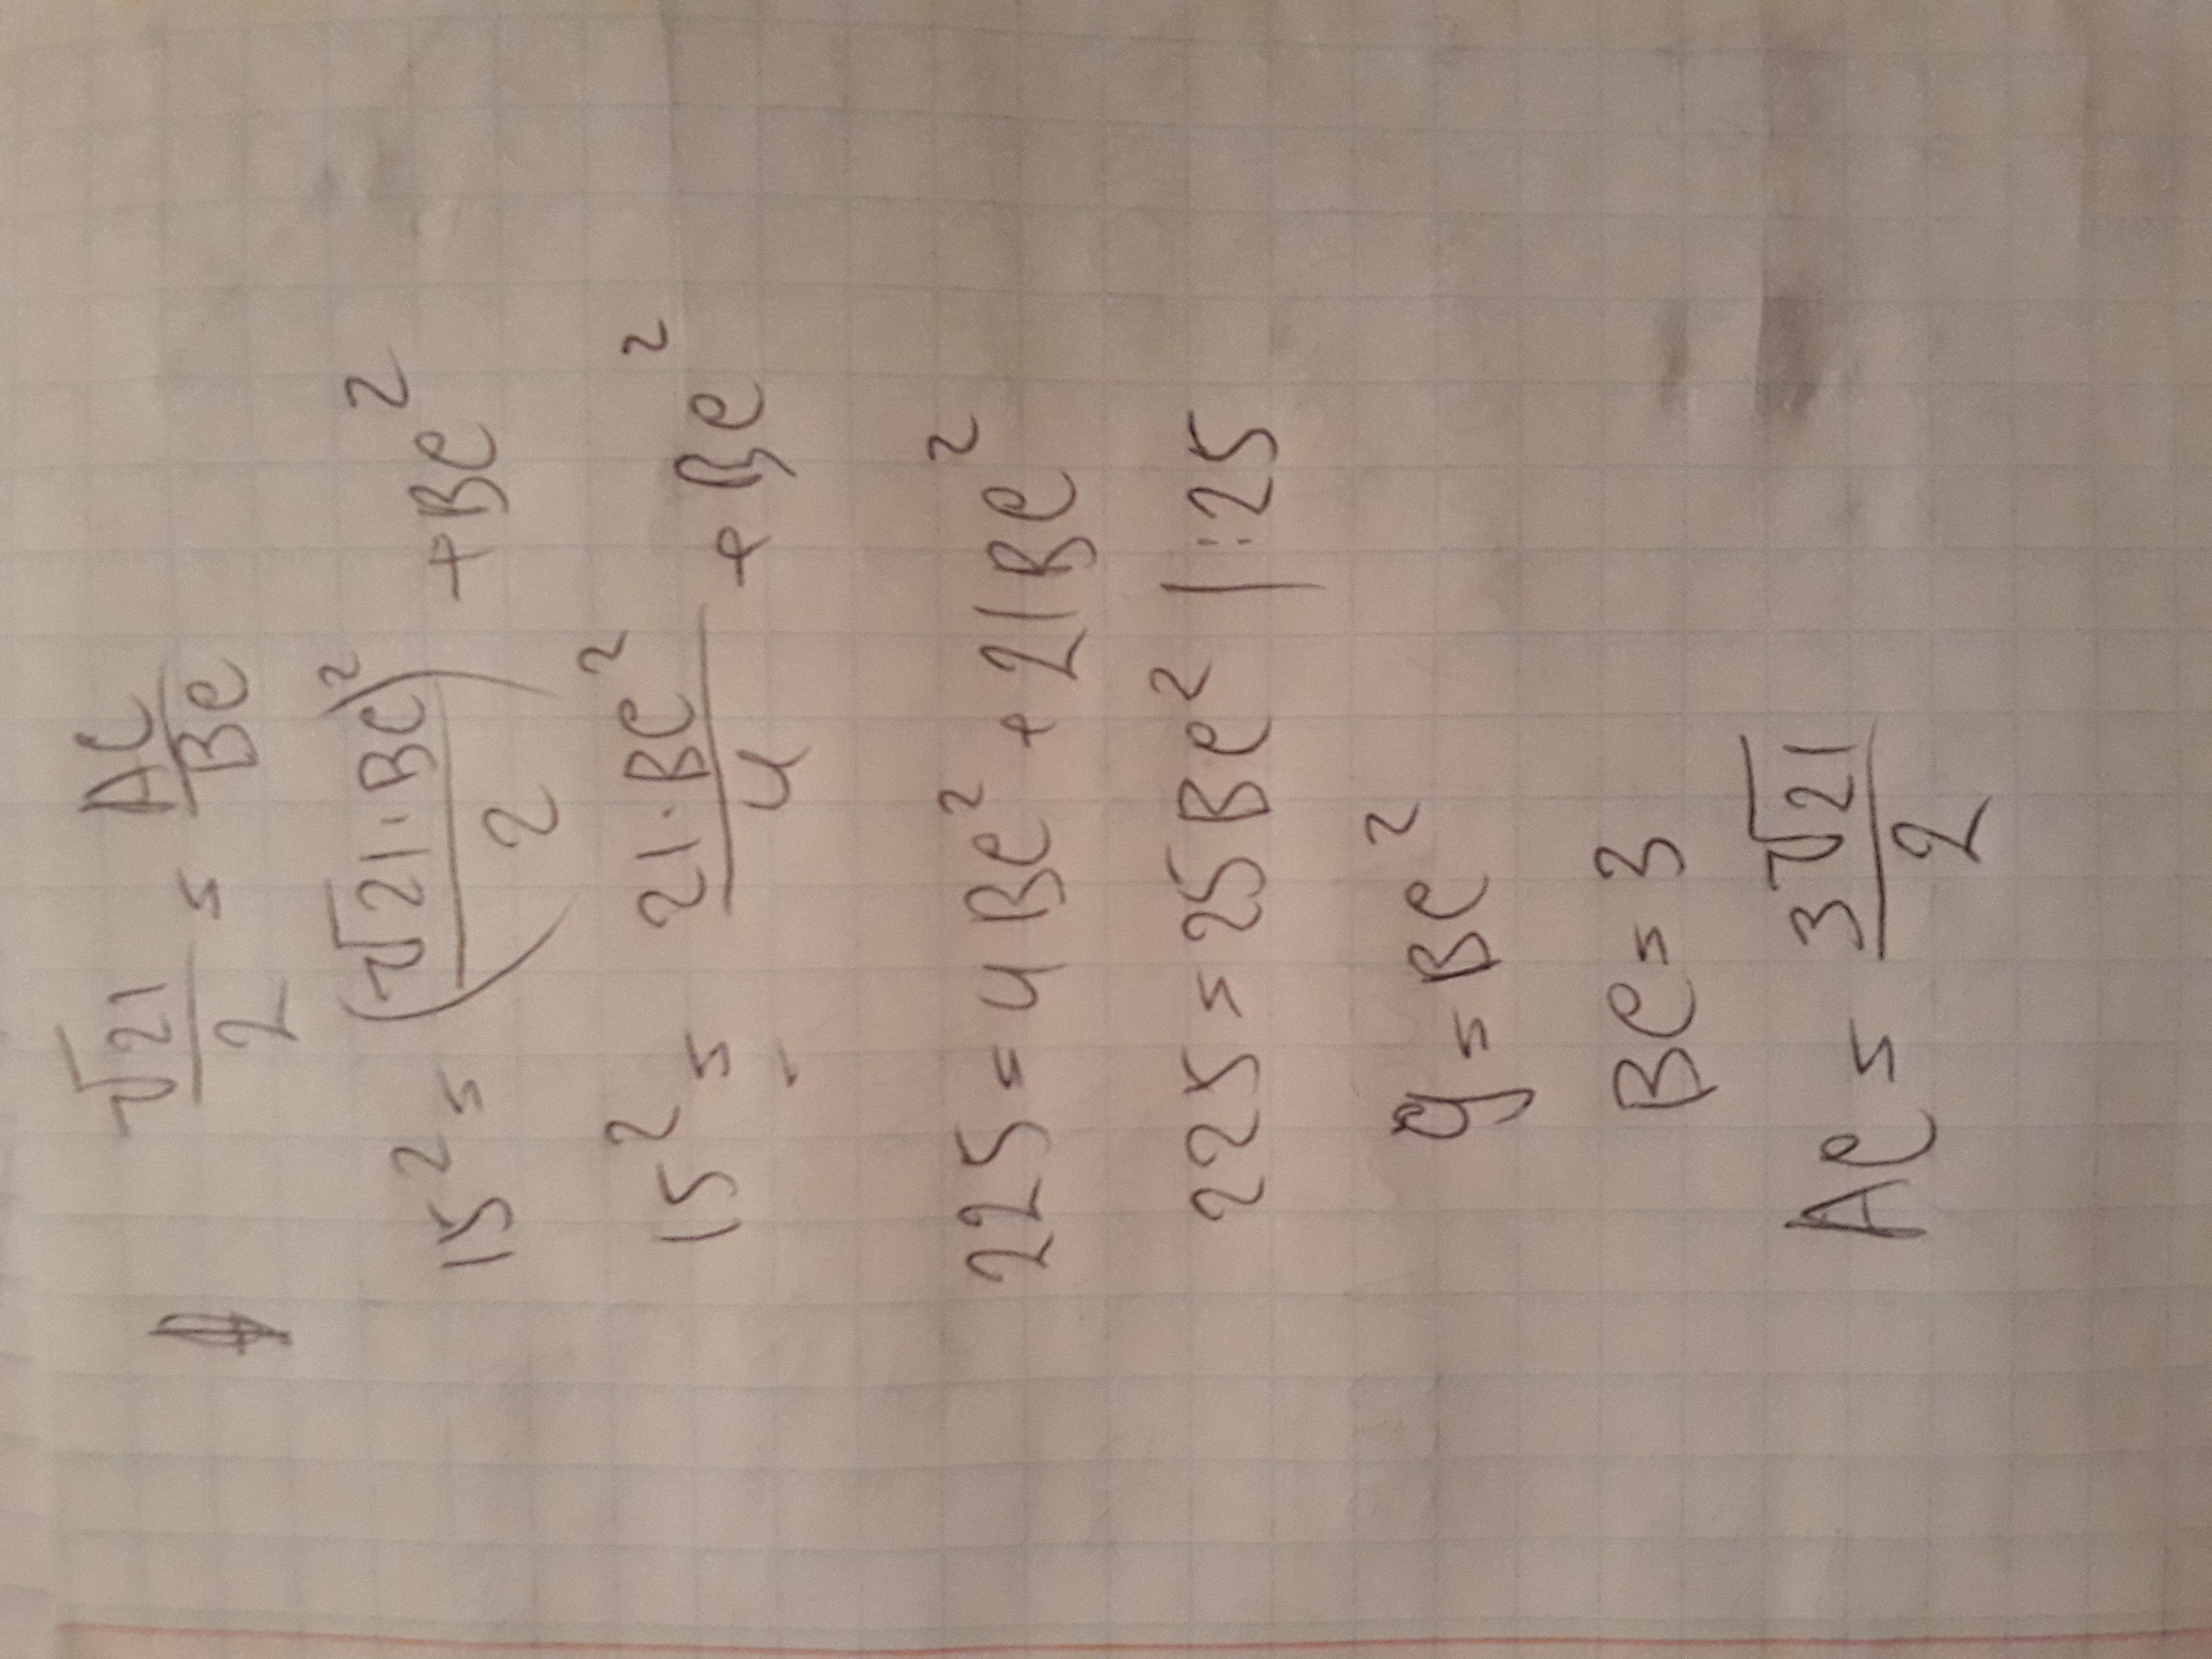 √21/2 = AC/BC
15² = (√21·BC/2)² + BC²
15² = 21·BC²/4 + BC²
225 = 4BC² + 21BC²
225 = 25BC² |:25
9 = BC²
BC = 3
AC = 3√21/2